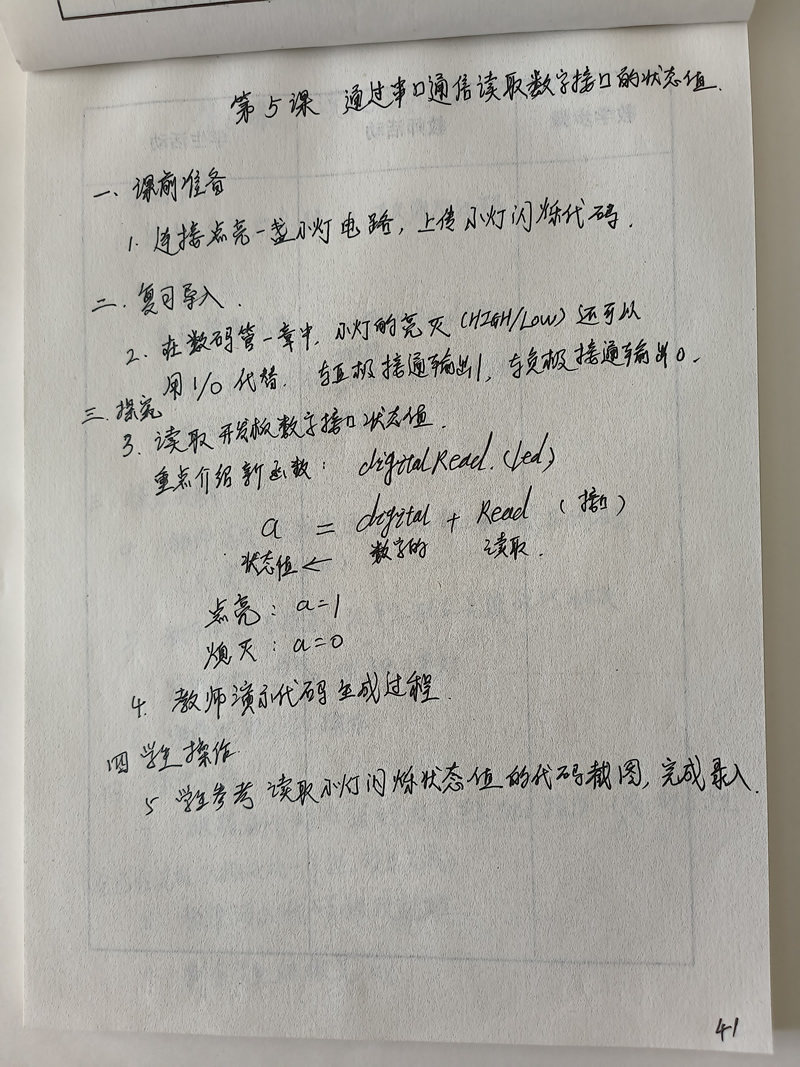 第5课 通过串口通信读取数字接口的状态值.
一、课前准备
1. 连接点亮一盏小灯电路，上传小灯闪烁代码.
二.复习导入.
2. 在数码管一章中，小灯的亮灭(HIGH/LOW)还可以
用1/0代替. 与正极接通输出1，与负极接通输出0.
三.探究
3. 读取开发板数字接口状态值.
重点介绍新函数: digitalRead.(led)
a = digital + Read (接口)
状态值 ← 数字的 读取.
点亮: a=1
熄灭: a=0
4. 教师演示代码生成过程.
四 学生操作.
5 学生参考读取小灯闪烁状态值的代码截图，完成录入.
41